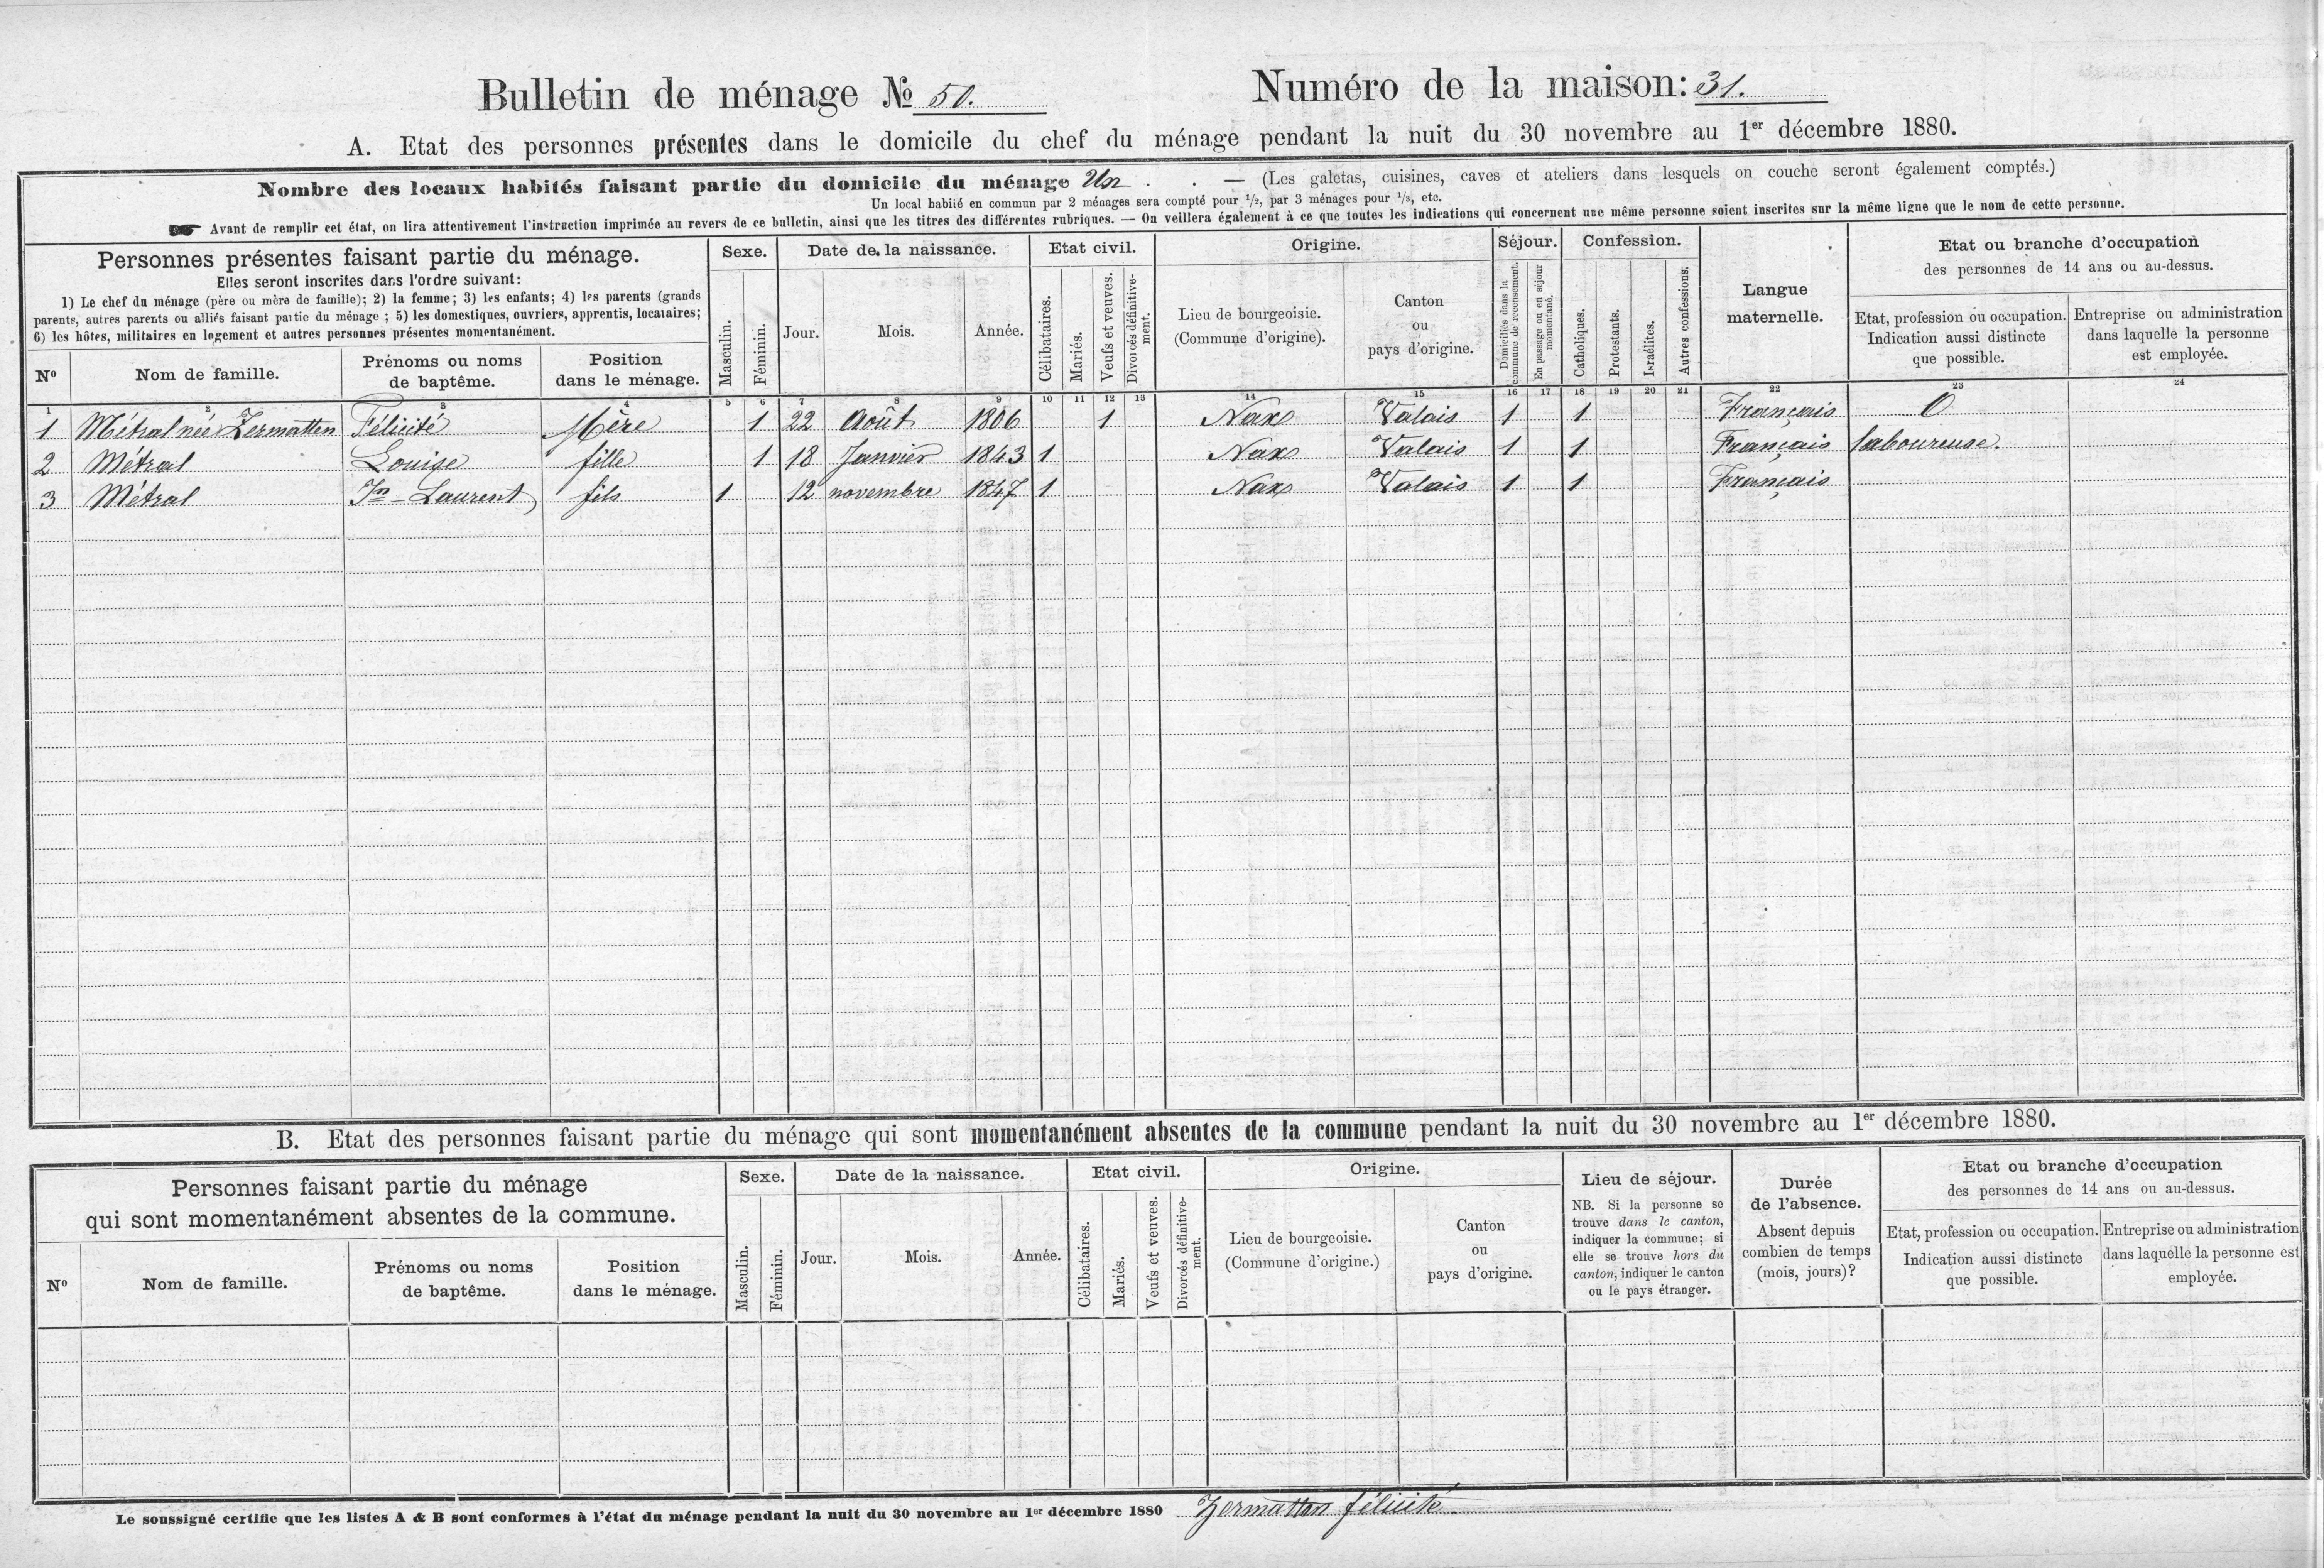 Bulletin de ménage № 50. Numéro de la maison: 31.
A. Etat des personnes présentes dans le domicile du chef du ménage pendant la nuit du 30 novembre au 1er décembre 1880.
Nombre des locaux habités faisant partie du domicile du ménage Un . . — (Les galetas, cuisines, caves et ateliers dans lesquels on couche seront également comptés.)
Un local habité en commun par 2 ménages sera compté pour 1/2, par 3 ménages pour 1/3, etc.
☛ Avant de remplir cet état, on lira attentivement l'instruction imprimée au revers de ce bulletin, ainsi que les titres des différentes rubriques. — On veillera également à ce que toutes les indications qui concernent une même personne soient inscrites sur la même ligne que le nom de cette personne.
Personnes présentes faisant partie du ménage.
Elles seront inscrites dans l'ordre suivant:
1) Le chef du ménage (père ou mère de famille); 2) la femme; 3) les enfants; 4) les parents (grands
parents, autres parents ou alliés faisant partie du ménage ; 5) les domestiques, ouvriers, apprentis, locataires;
6) les hôtes, militaires en logement et autres personnes présentes momentanément.
Nº
Nom de famille.
Prénoms ou noms
de baptême.
Position
dans le ménage.
Sexe.
Masculin.
Féminin.
Date de la naissance.
Jour.
Mois.
Année.
Etat civil.
Célibataires.
Mariés.
Veufs et veuves.
Divorcés définitive-
ment.
Origine.
Lieu de bourgeoisie.
(Commune d'origine).
Canton
ou
pays d'origine.
Séjour.
Domiciliés dans la
commune de recensement.
En passage ou en séjour
momentané.
Confession.
Catholiques.
Protestants.
Israélites.
Autres confessions.
Langue
maternelle.
Etat ou branche d'occupation
des personnes de 14 ans ou au-dessus.
Etat, profession ou occupation.
Indication aussi distincte
que possible.
Entreprise ou administration
dans laquelle la personne
est employée.
1 2 3 4 5 6 7 8 9 10 11 12 13 14 15 16 17 18 19 20 21 22 23 24
1 Métral née Zermatten Félicité Mère 1 22 Août 1806 1 Nax Valais 1 1 Français 0
2 Métral Louise fille 1 18 Janvier 1843 1 Nax Valais 1 1 Français laboureuse.
3 Métral Jn-Laurent fils 1 12 novembre 1847 1 Nax Valais 1 1 Français
B. Etat des personnes faisant partie du ménage qui sont momentanément absentes de la commune pendant la nuit du 30 novembre au 1er décembre 1880.
Personnes faisant partie du ménage
qui sont momentanément absentes de la commune.
Nº
Nom de famille.
Prénoms ou noms
de baptême.
Position
dans le ménage.
Sexe.
Masculin.
Féminin.
Date de la naissance.
Jour.
Mois.
Année.
Etat civil.
Célibataires.
Mariés.
Veufs et veuves.
Divorcés définitive-
ment.
Origine.
Lieu de bourgeoisie.
(Commune d'origine.)
Canton
ou
pays d'origine.
Lieu de séjour.
NB. Si la personne se
trouve dans le canton,
indiquer la commune; si
elle se trouve hors du
canton, indiquer le canton
ou le pays étranger.
Durée
de l'absence.
Absent depuis
combien de temps
(mois, jours)?
Etat ou branche d'occupation
des personnes de 14 ans ou au-dessus.
Etat, profession ou occupation.
Indication aussi distincte
que possible.
Entreprise ou administration
dans laquelle la personne est
employée.
Le soussigné certifie que les listes A & B sont conformes à l'état du ménage pendant la nuit du 30 novembre au 1er décembre 1880 Zermatten félicité